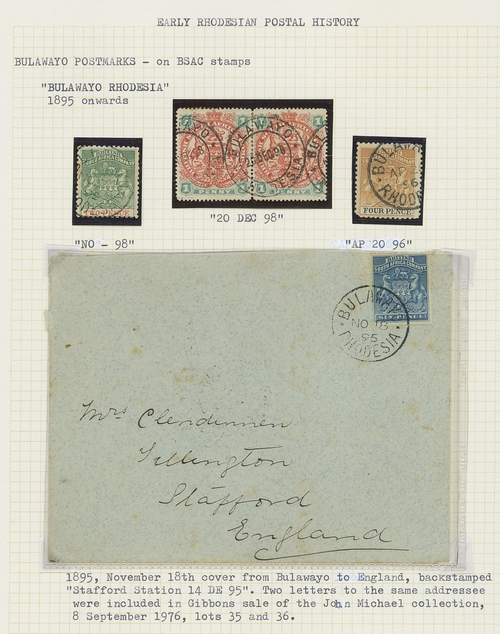 EARLY RHODESIAN POSTAL HISTORY
BULAWAYO POSTMARKS - on BSAC stamps
"BULAWAYO RHODESIA"
1895 onwards
BULAWAYO
1 PENNY 1
1 PENNY 1
FOUR PENCE
"20 DEC 98"
"NO - 98"
"AP 20 96"
SOUTH AFRICA COMPANY
SIX PENCE
BULAWAYO
NO 18
95
RHODESIA
Mrs Clendinnen
Gillington
Stafford
England
1895, November 18th cover from Bulawayo to England, backstamped
"Stafford Station 14 DE 95". Two letters to the same addressee
were included in Gibbons sale of the John Michael collection,
8 September 1976, lots 35 and 36.